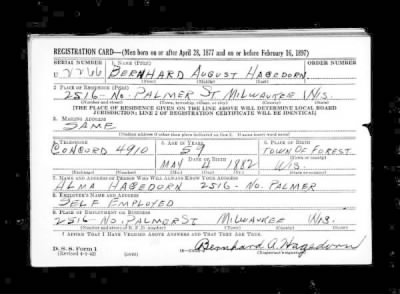 REGISTRATION CARD—(Men born on or after April 28, 1877 and on or before February 16, 1897)
SERIAL NUMBER 1. NAME (Print) ORDER NUMBER
U 2266 BERNHARD AUGUST HAGEDORN
(First) (Middle) (Last)
2. PLACE OF RESIDENCE (Print)
2516-NO. PALMER ST MILWAUKEE WIS.
(Number and street) (Town, township, village, or city) (County) (State)
[THE PLACE OF RESIDENCE GIVEN ON THE LINE ABOVE WILL DETERMINE LOCAL BOARD
JURISDICTION; LINE 2 OF REGISTRATION CERTIFICATE WILL BE IDENTICAL]
3. MAILING ADDRESS
SAME
[Mailing address if other than place indicated on line 2. If same insert word same]
4. TELEPHONE 5. AGE IN YEARS 6. PLACE OF BIRTH
CONCORD 4910 59 TOWN OF FOREST
DATE OF BIRTH (Town or county)
MAY 4 1882 WIS.
(Mo.) (Day) (Yr.) (State or country)
7. NAME AND ADDRESS OF PERSON WHO WILL ALWAYS KNOW YOUR ADDRESS
ALMA HAGEDORN 2516-NO. PALMER
8. EMPLOYER'S NAME AND ADDRESS
SELF EMPLOYED
9. PLACE OF EMPLOYMENT OR BUSINESS
2516-NO. PALMER ST MILWAUKEE WIS.
(Number and street or R. F. D. number) (Town) (County) (State)
I AFFIRM THAT I HAVE VERIFIED ABOVE ANSWERS AND THAT THEY ARE TRUE.
D. S. S. Form 1 Bernhard A. Hagedorn
(Revised 4-1-42) (Registrant's signature)